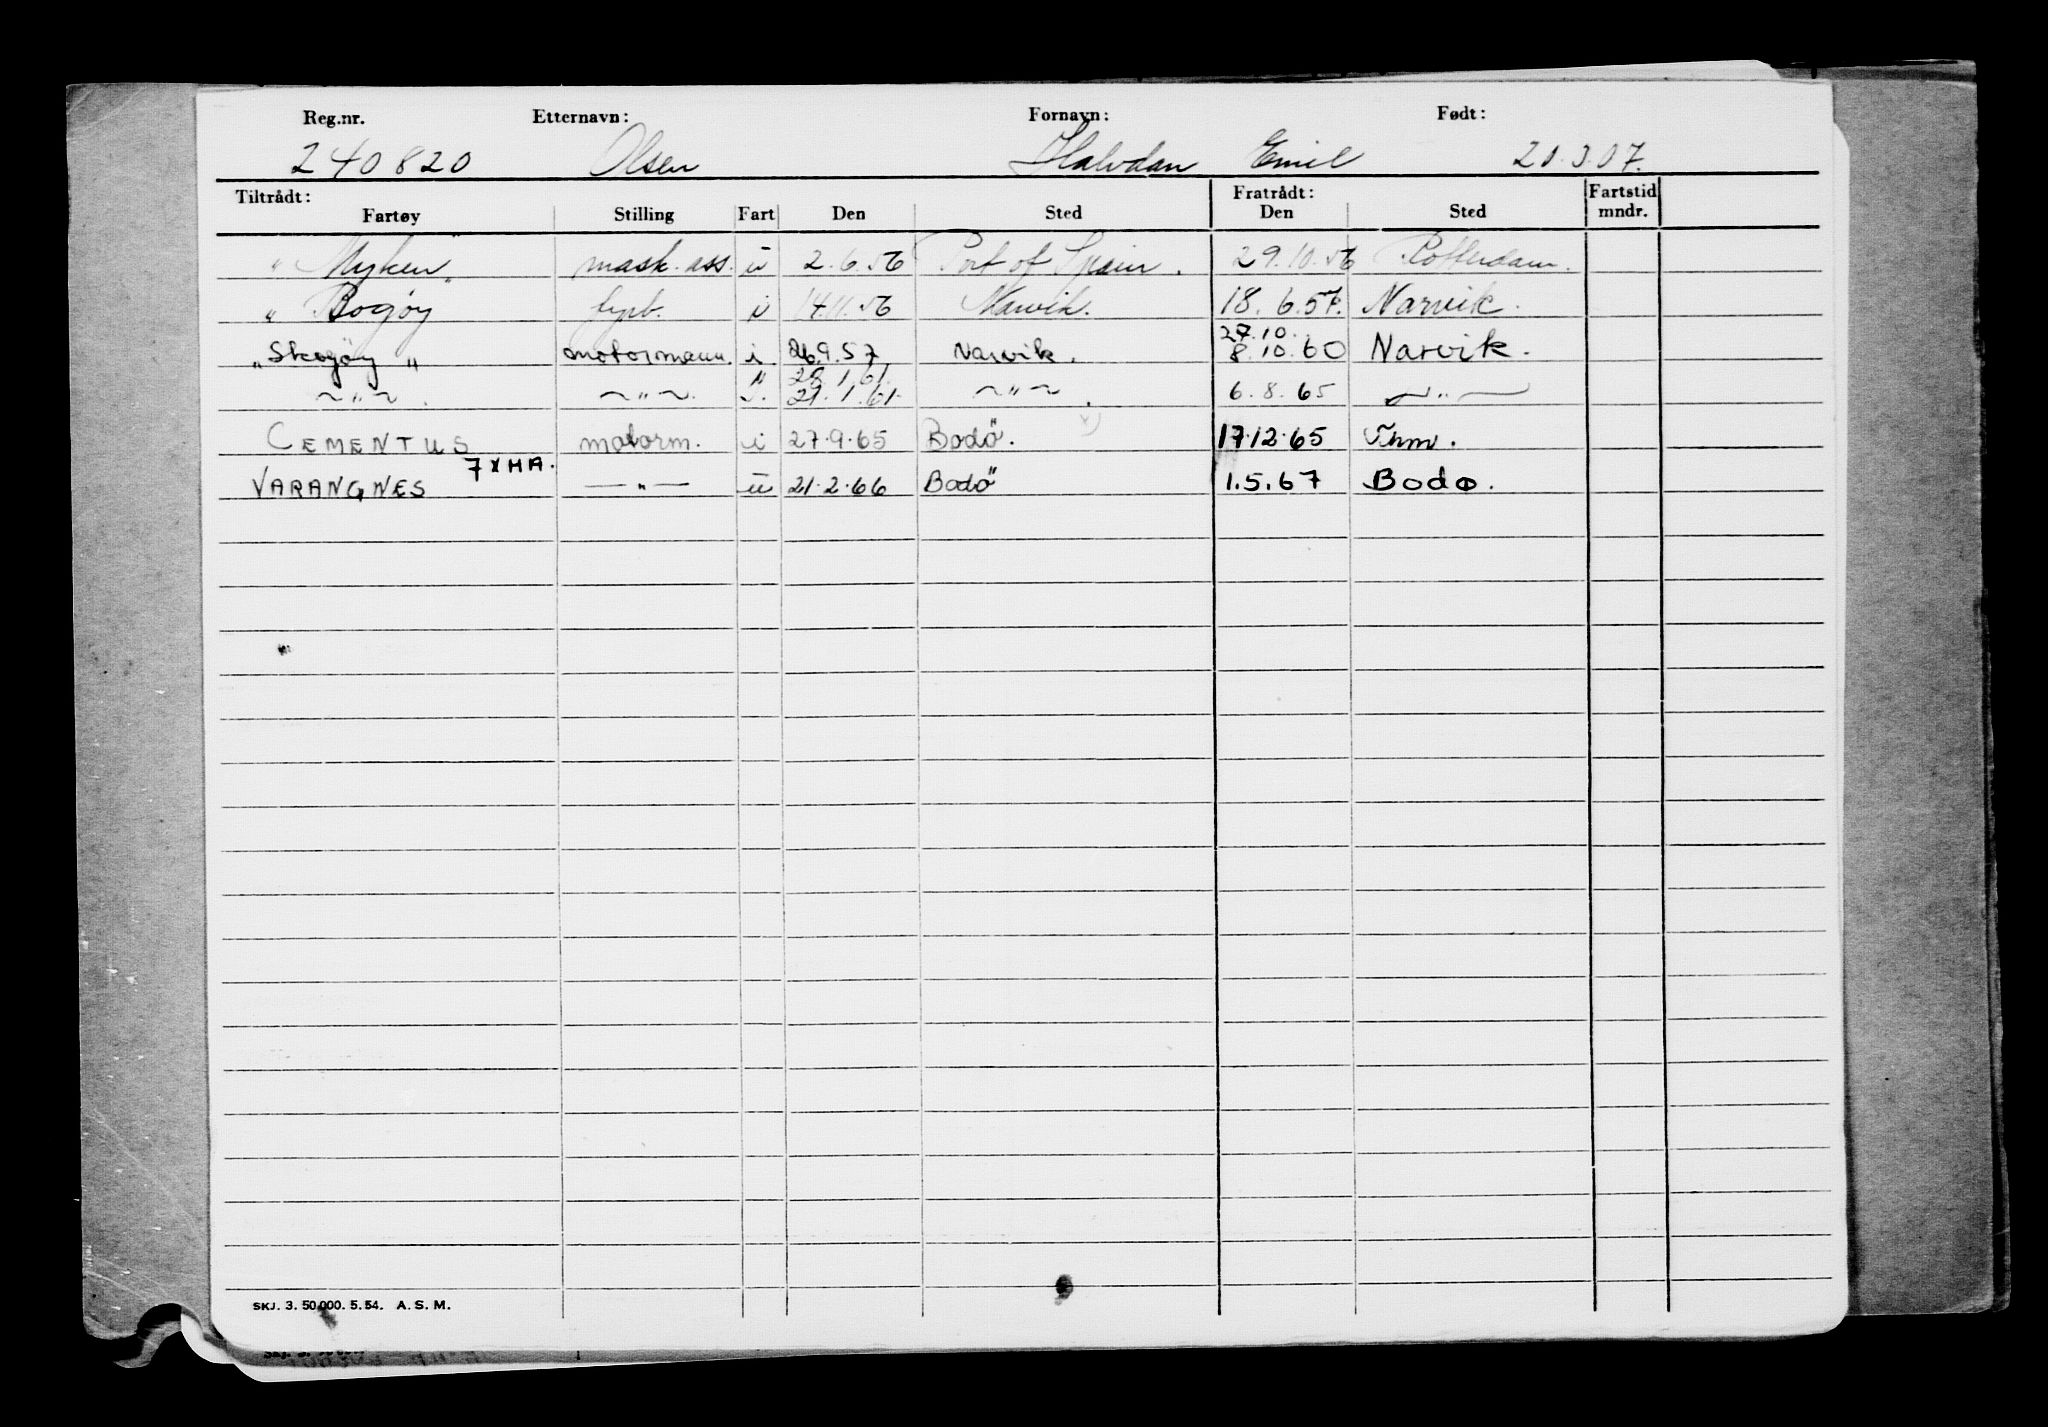 Reg.nr. Etternavn: Fornavn: Født:
240820 Olsen Halvdan Emil 20.3.07.
Tiltrådt: Fratrådt: Fartstid
Fartøy Stilling Fart Den Sted Den Sted mndr.
"Myken" mask.ass. u 2.6.56 Port of Spain. 29.10.56 Rotterdam.
" Bogøy fyrb. i 14.11.56 Narvik. 18.6.57. Narvik.
27.10.
"Skogöy" motormann. i 26.9.57 Narvik. 8.10.60 Narvik.
" 28.1.61.
~"~. ~"~. 21.1.61. ~"~. 6.8.65 ~"~
CEMENTUS motorm. i 27.9.65 Bodö. x) 17.12.65 Thm.
7 x HA.
VARANGNES —"— u 21.2.66 Bodö 1.5.67 Bodø.
SKJ. 3. 50.000. 5. 54. A. S. M.